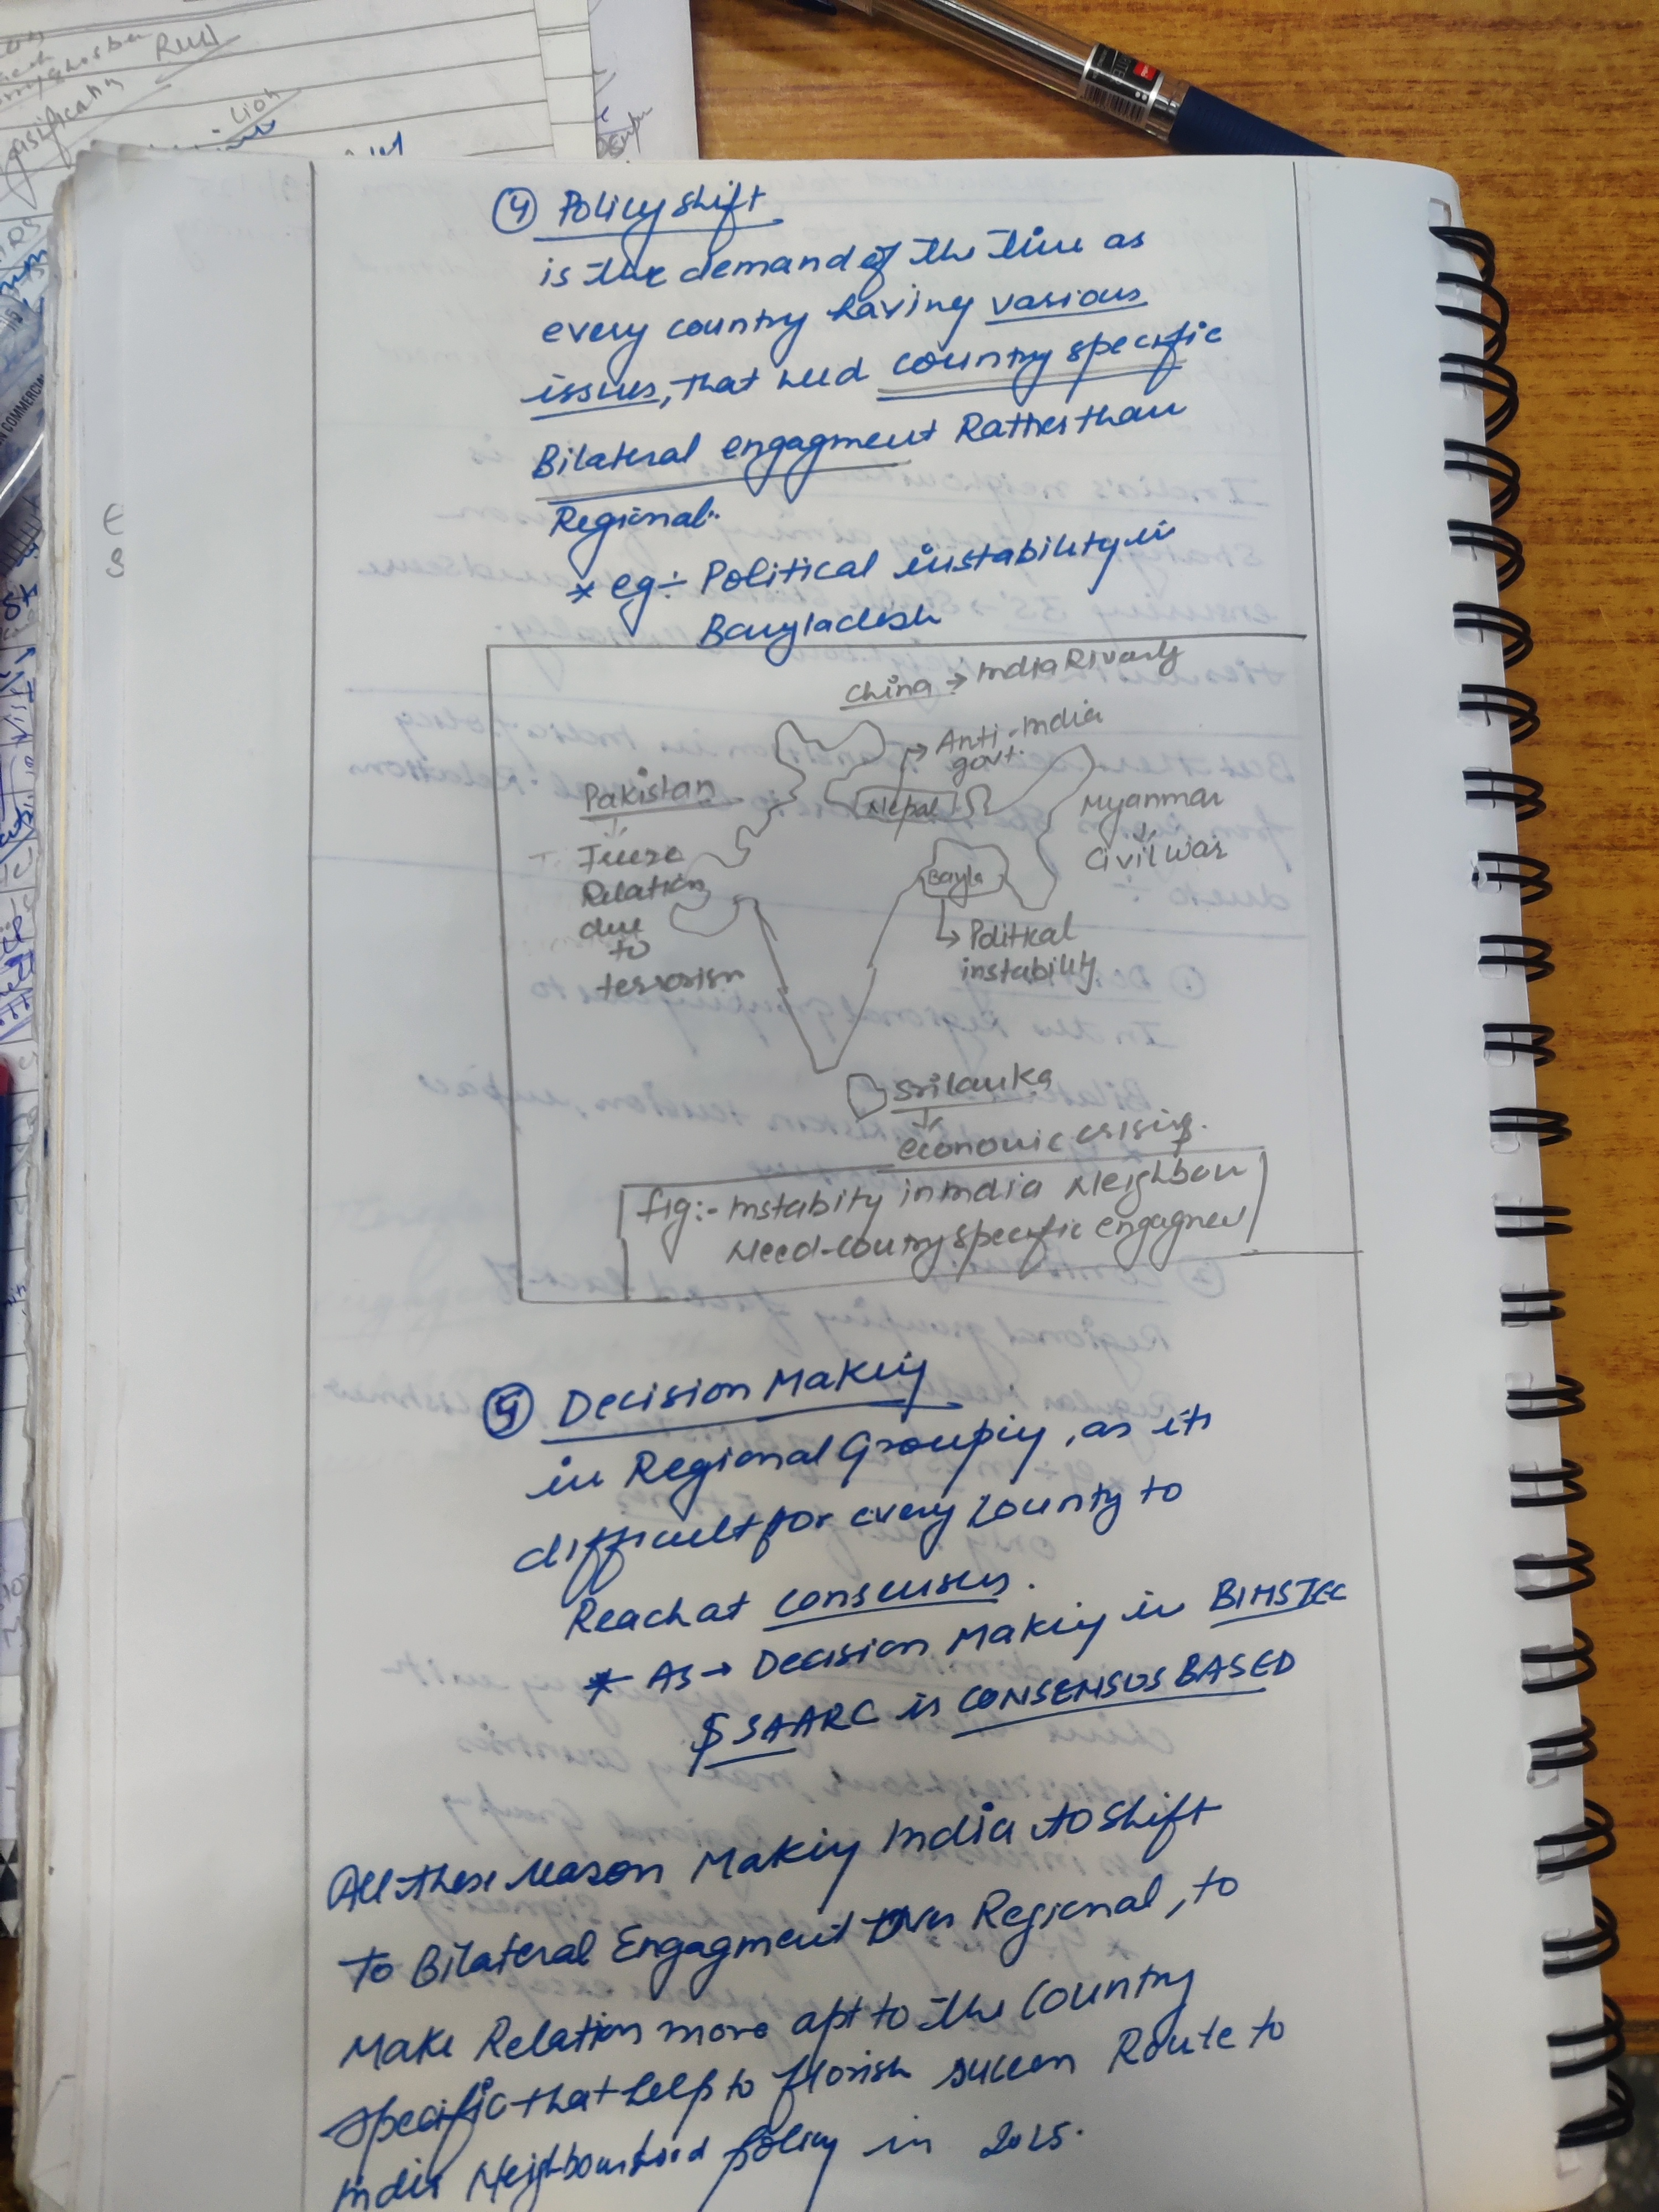 ④ Policy shift
is the demand of the time as
every country having various
issues, that need country specific
Bilateral engagment Rather than
Regional.
* eg ÷ Political instability in
Bangladesh
China → India Rivarly
→ Anti-India
govt.
Pakistan
Nepal
Myanmar
↓
Civil war
Relation
due
to
terrorism
Bangla
↳ Political
instability
Srilanka
↓
economic crisis.
fig:- Instabity in India Neighbour
Need-country specific engagmen
⑤ Decision Making
in Regional Grouping, as its
difficult for every County to
Reach at consensus.
* As → Decision Making in BIMSTEC
$ SAARC is CONSENSUS BASED
All these reason Making India to shift
To Bilateral Engagment Over Regional, to
Make Relation more apt to the Country
specific that help to florish success Route to
India Neighbourhood policy in 2025.